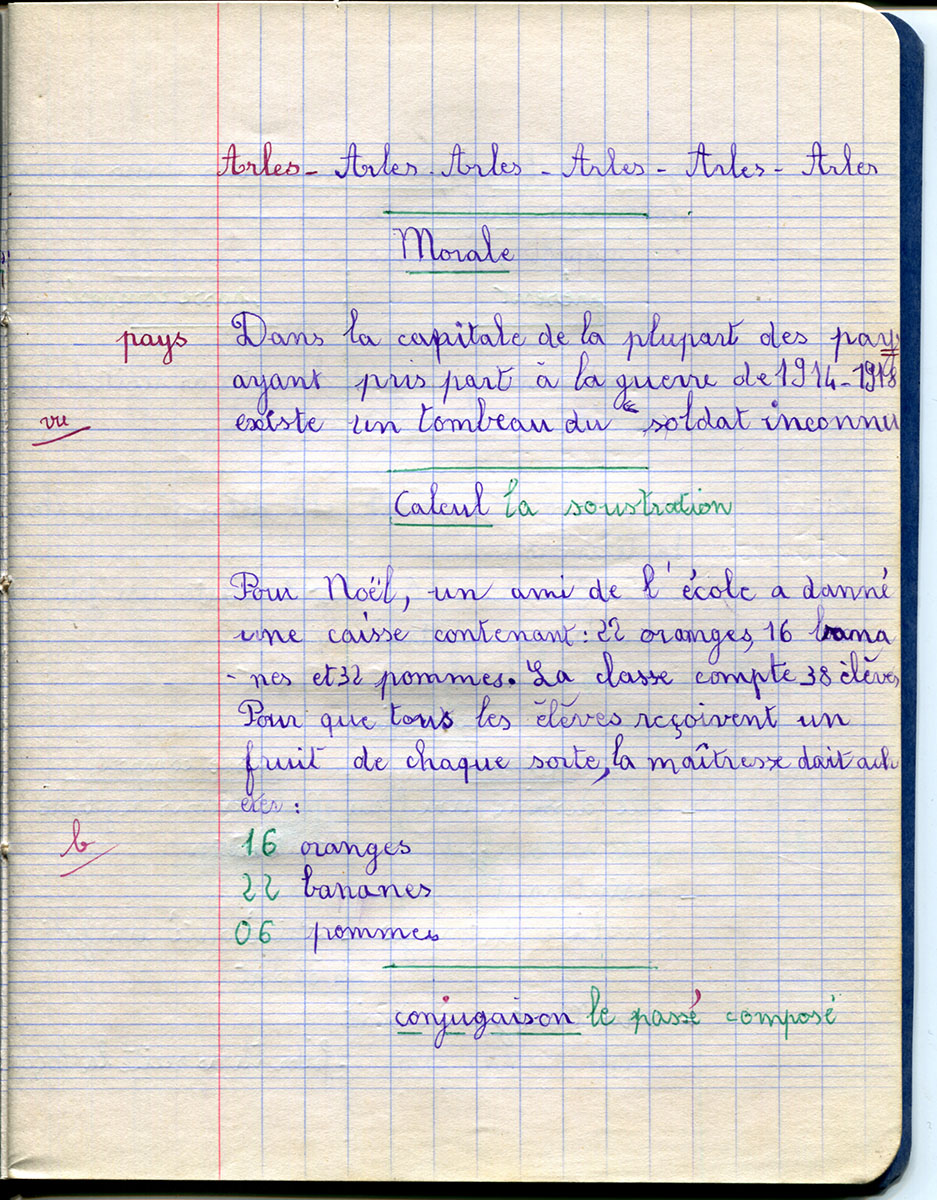 Arles - Arles - Arles - Arles - Arles - Arles
Morale
pays Dans la capitale de la plupart des pays
ayant pris part à la guerre de 1914-1918
vu existe un tombeau du "soldat inconnu
Calcul la soustration
Pour Noël, un ami de l'école a donné
une caisse contenant : 22 oranges, 16 bana
- nes et 32 pommes. La classe compte 38 élèves
Pour que tous les élèves reçoivent un
fruit de chaque sorte, la maîtresse doit ach
eter :
b 16 oranges
22 bananes
06 pommes
conjugaison le passé composé